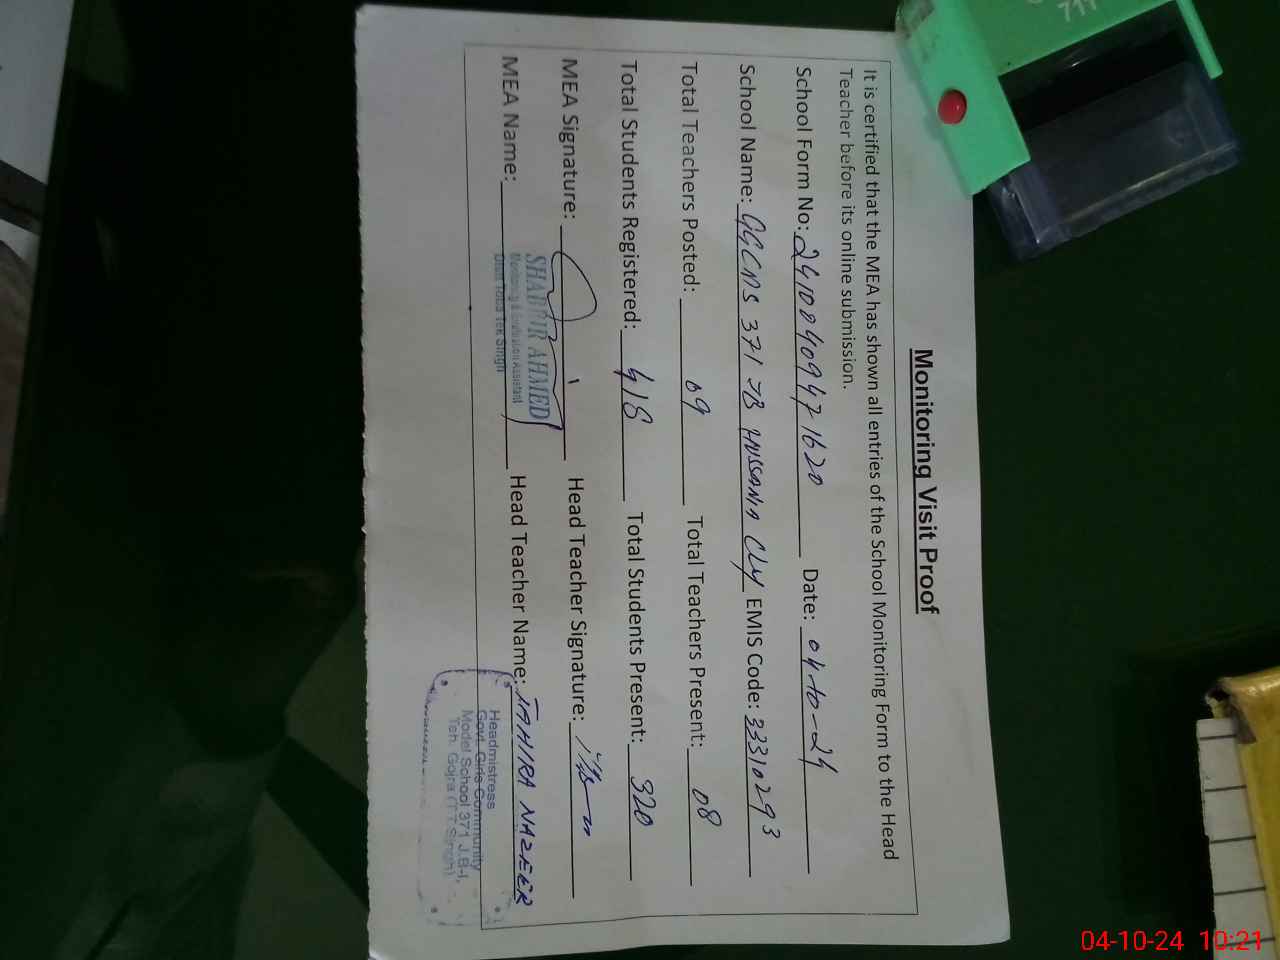 Monitoring Visit Proof
It is certified that the MEA has shown all entries of the School Monitoring Form to the Head
Teacher before its online submission.
School Form No: 2410040947 1620 Date: 04-10-24
School Name: GGCMS 371 JB HUSSANIA EMIS Code: 33310293
Total Teachers Posted: 09 Total Teachers Present: 08
Total Students Registered: 418 Total Students Present: 320
MEA Signature: Head Teacher Signature:
MEA Name: SHABBIR AHMED Head Teacher Name: TAHIRA NAZEER
Monitoring & Evaluation Assistant
Distt Toba Tek Singh
Headmistress
Govt. Girls Community
Model School 371 J.B-I,
Teh. Gojra (T.T.Singh)
711
04-10-24 10:21